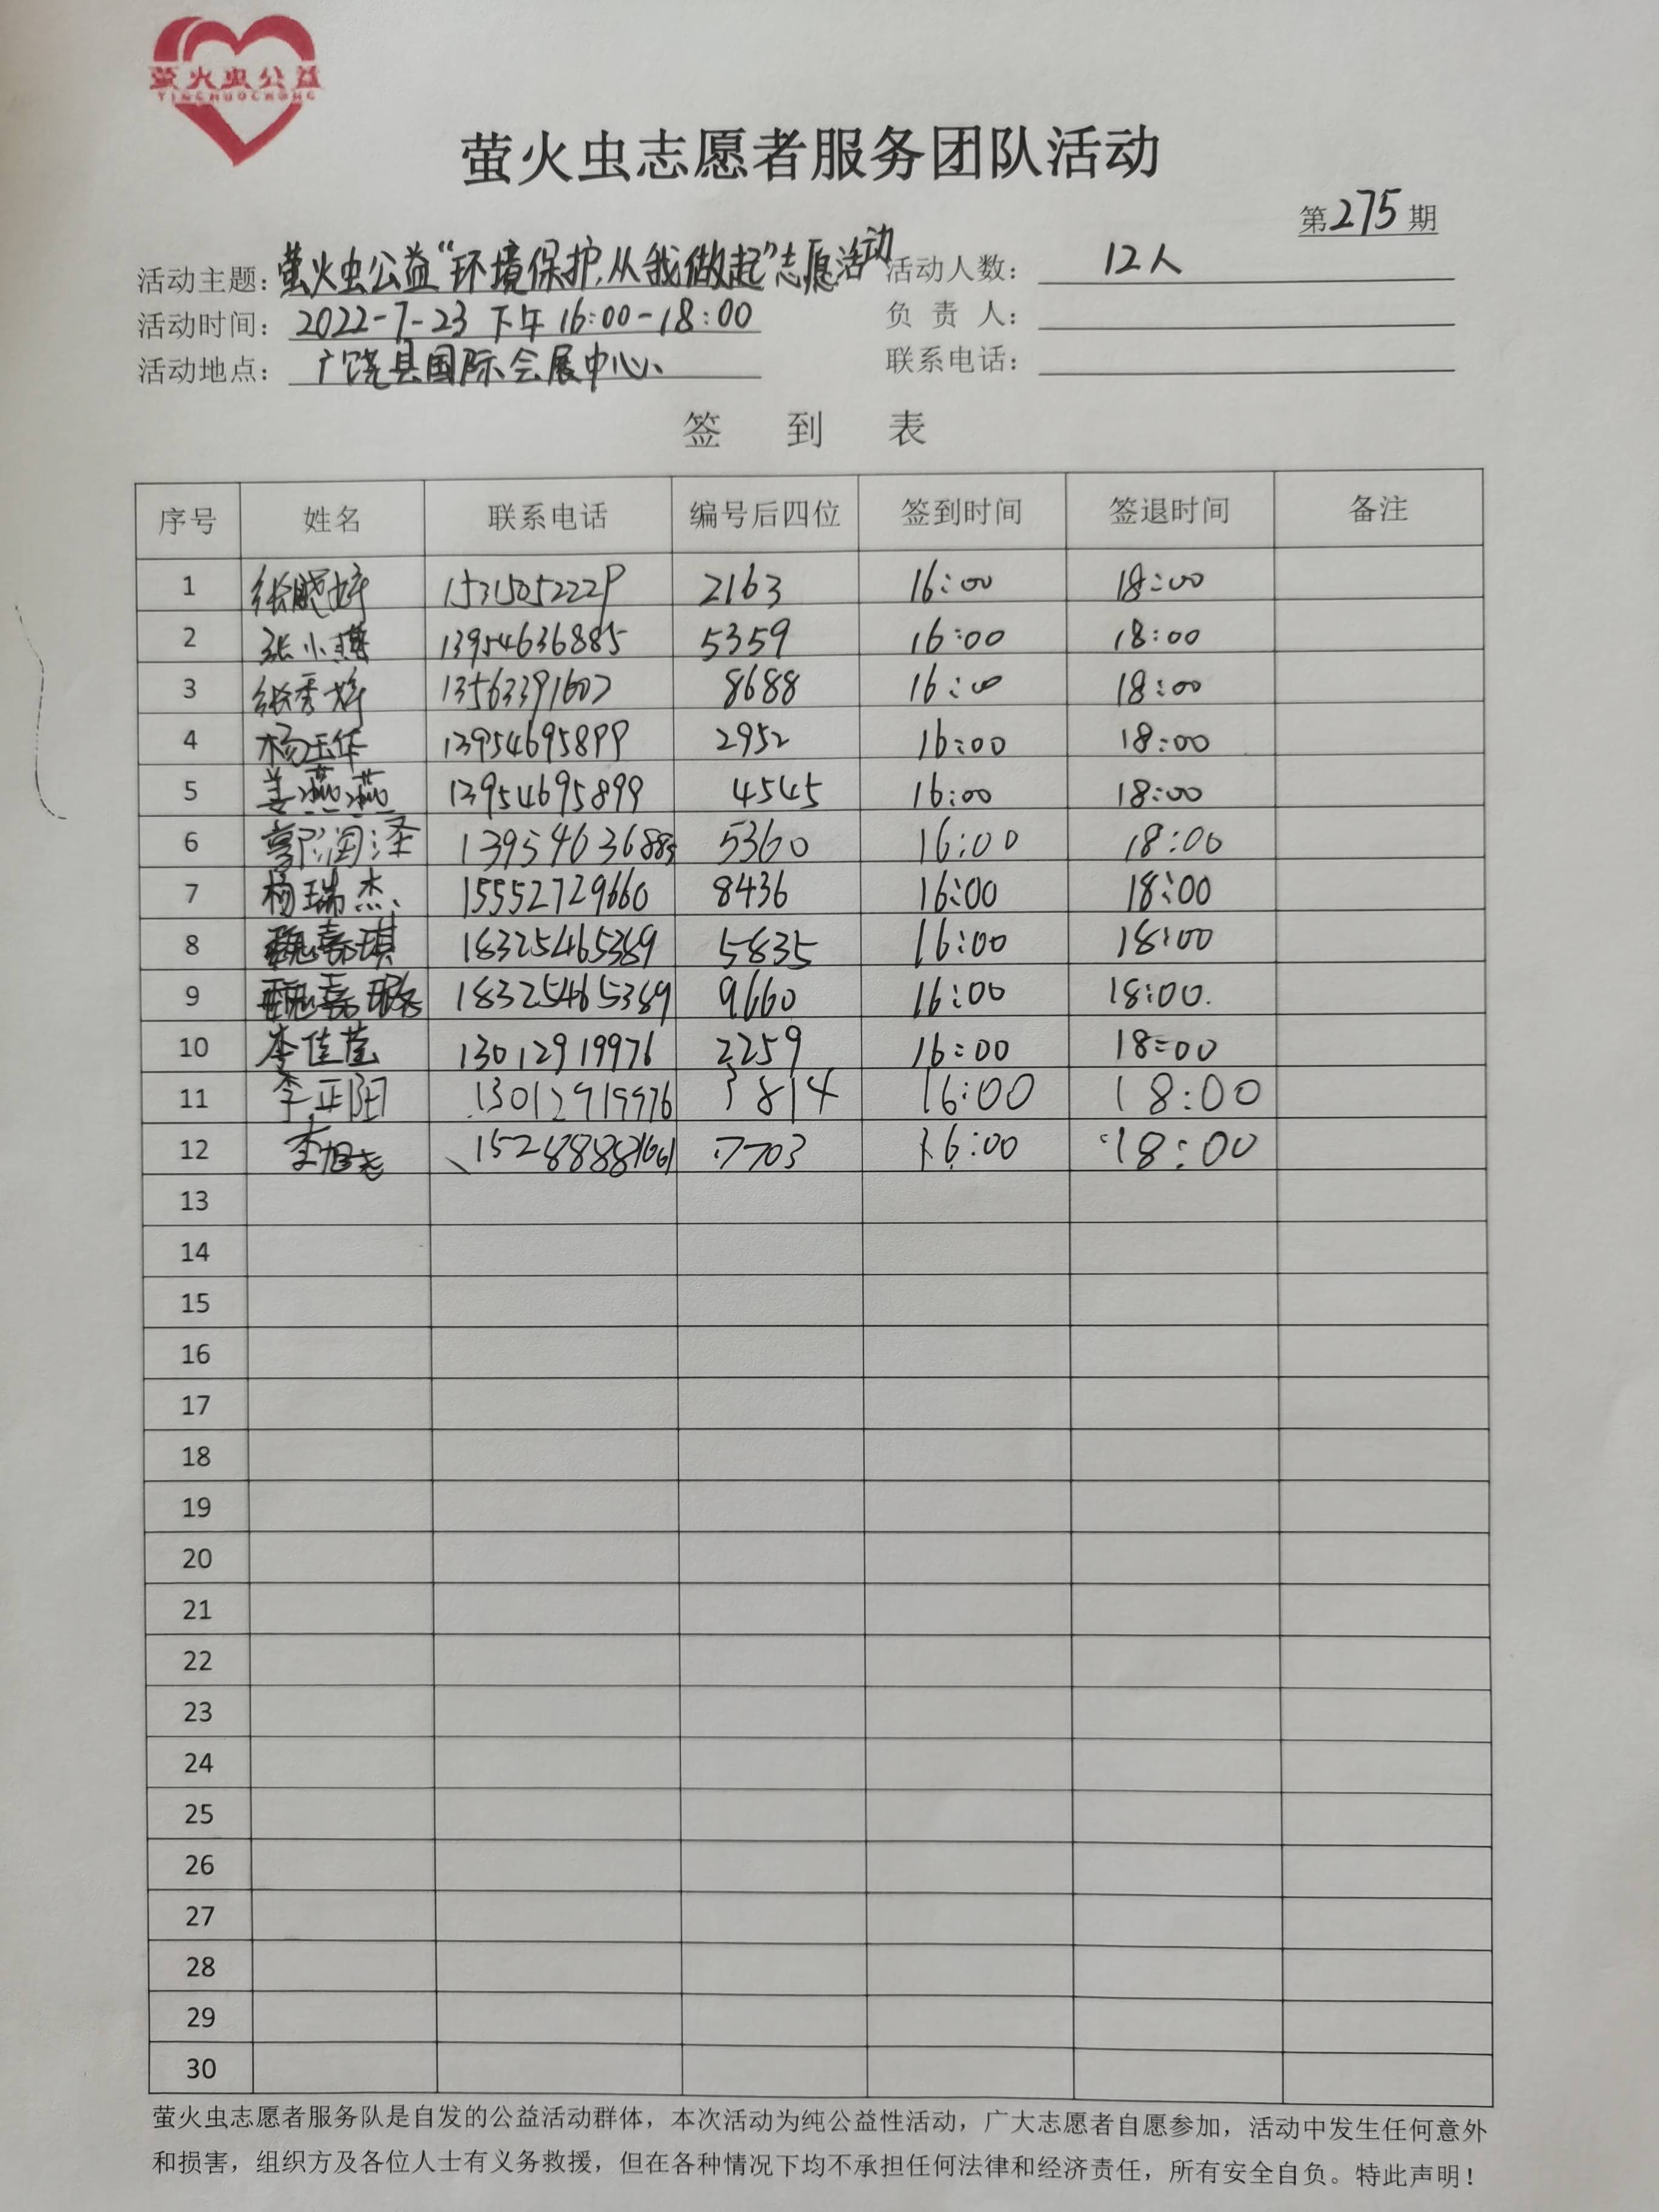 萤火虫公益
YINGHUOCHONG
萤火虫志愿者服务团队活动
第275期
活动主题：萤火虫公益“环境保护,从我做起”志愿活动 活动人数： 12人
活动时间： 2022-7-23 下午 16:00-18:00 负 责 人：
活动地点： 广饶县国际会展中心 联系电话：
签 到 表
序号 姓名 联系电话 编号后四位 签到时间 签退时间 备注
1 张晓婷 15315052229 2163 16:00 18:00
2 张小 13954636885 5359 16:00 18:00
3 张秀 13563391607 8688 16:00 18:00
4 杨玉华 13954695899 2952 16:00 18:00
5 姜燕燕 13954695899 4545 16:00 18:00
6 郭润泽 13954636885 5360 16:00 18:00
7 杨瑞杰 15552729660 8436 16:00 18:00
8 魏嘉琪 18325465389 5835 16:00 18:00
9 魏嘉璐 18325465389 9660 16:00 18:00.
10 李佳莹 13012919976 2259 16:00 18:00
11 李正阳 13012919976 3814 16:00 18:00
12 李旭 7703 16:00 18:00
13
14
15
16
17
18
19
20
21
22
23
24
25
26
27
28
29
30
萤火虫志愿者服务队是自发的公益活动群体，本次活动为纯公益性活动，广大志愿者自愿参加，活动中发生任何意外
和损害，组织方及各位人士有义务救援，但在各种情况下均不承担任何法律和经济责任，所有安全自负。特此声明！